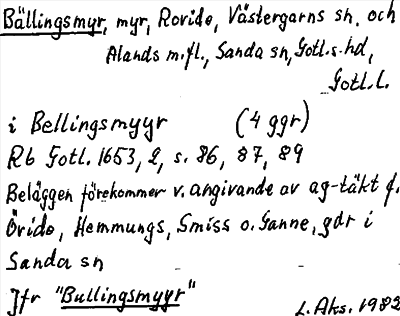 Bällingsmyr, myr, Rovide, Västergarns sn, och
Alands m.fl., Sanda sn, Gotl.s.hd,
Gotl.l.
i Bellingsmyyr (4 ggr)
Rb Gotl. 1653, 2, s. 86, 87, 89
Beläggen förekommer v. angivande av ag-täkt f.
Övide, Hemmungs, Smiss o. Ganne, gdr i
Sanda sn
Jfr "Bullingsmyyr"
L. Aks. 1982